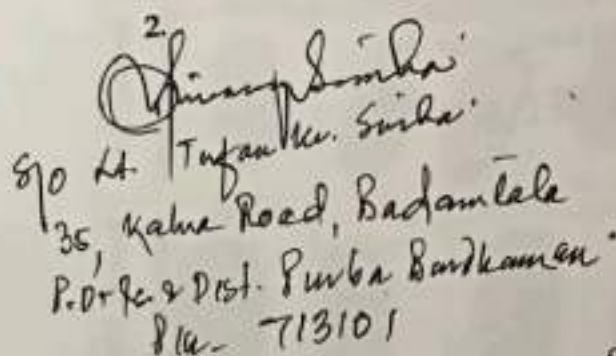 2.
Sinha
S/o Lt. Tufan Kr. Sinha
35, Kalna Road, Badamtala
P.O + P.S. & Dist. Purba Bardhaman
Pin - 713101